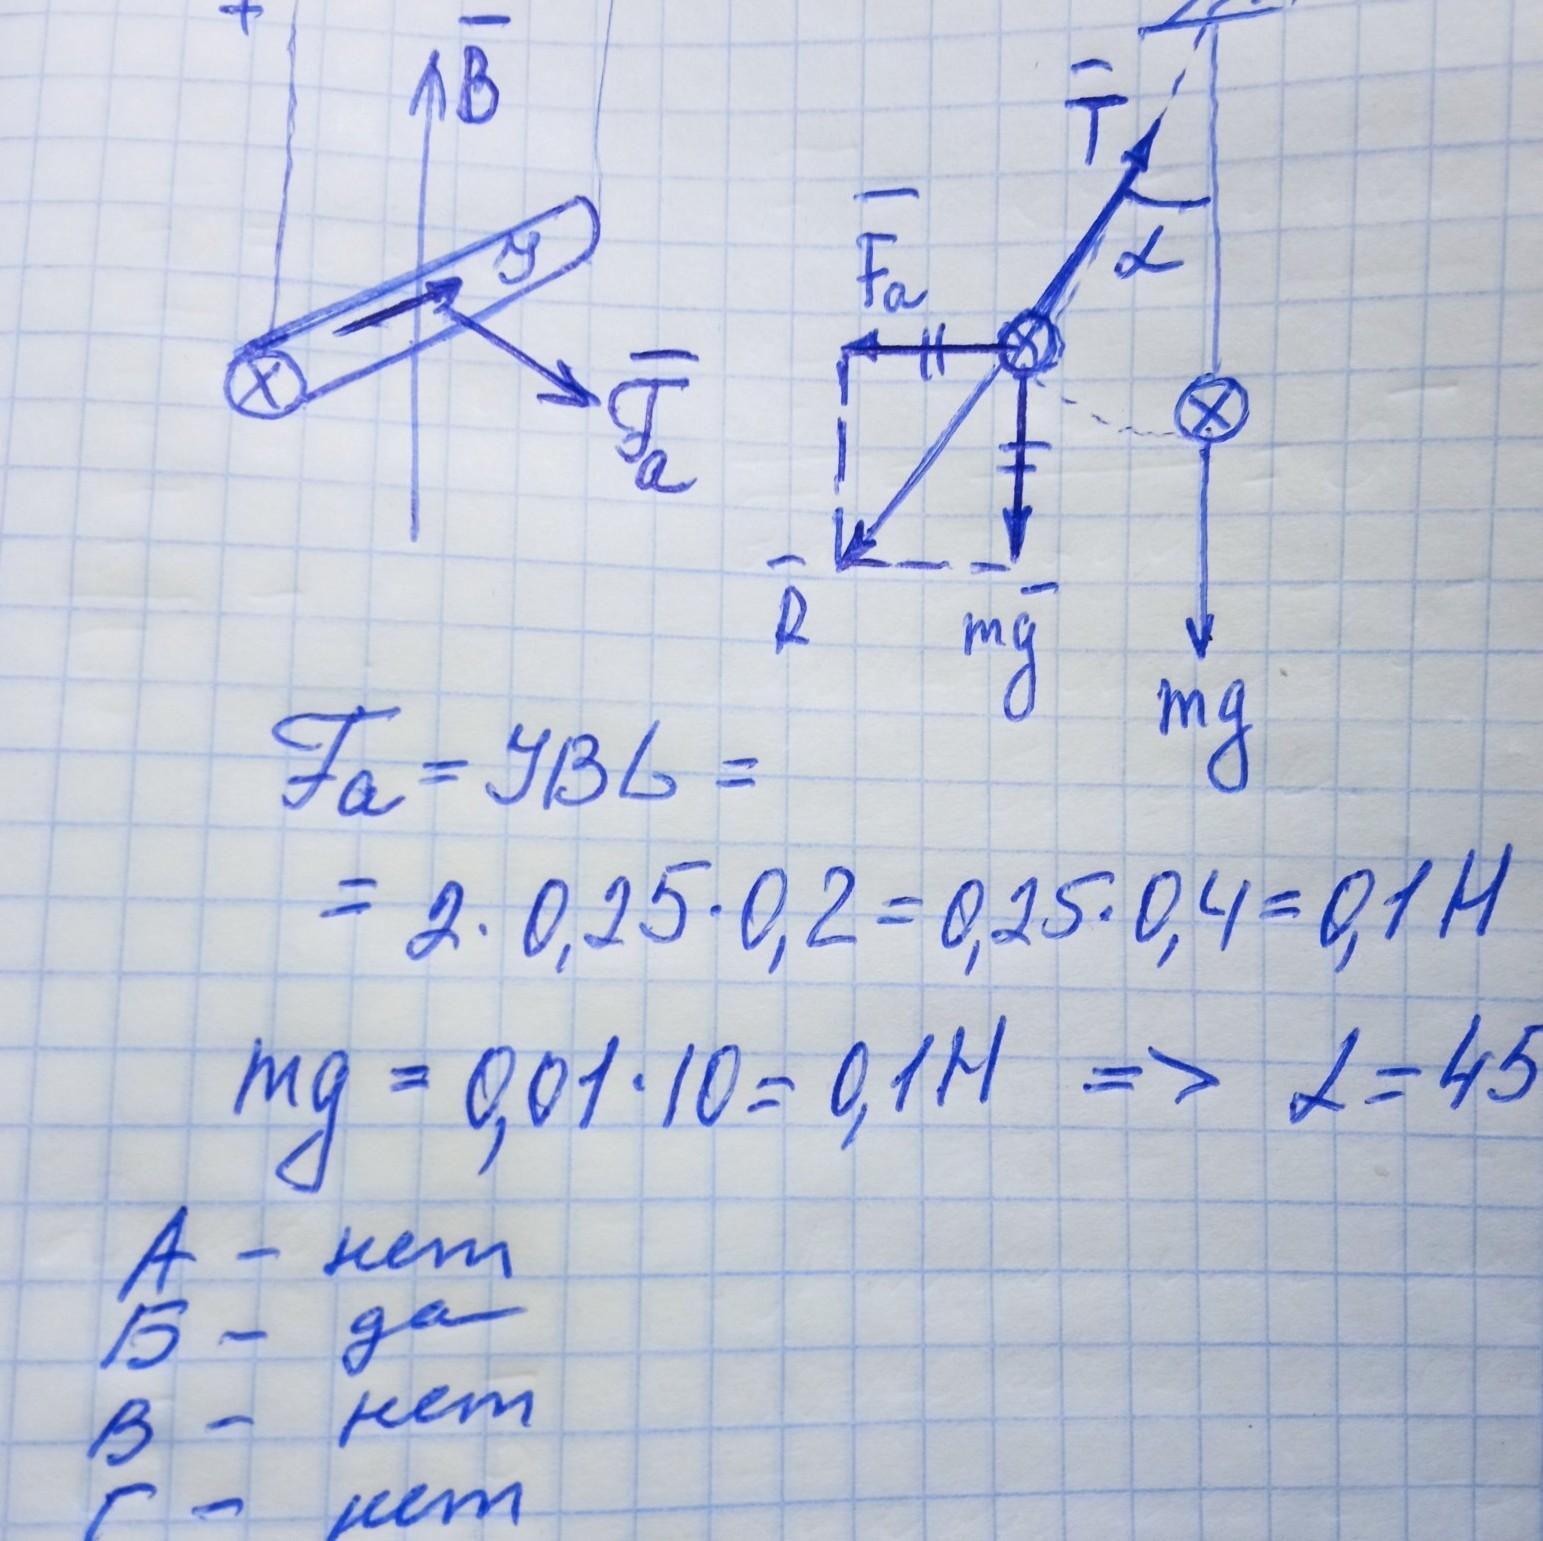 +
B̅
T̅
F̅a
α
У
F̅a
R̅
mg̅
mg
Fa = УBL =
= 2·0,25·0,2=0,25·0,4=0,1Н
mg = 0,01·10=0,1Н => α=45
А - нет
Б - да
В - нет
Г - нет